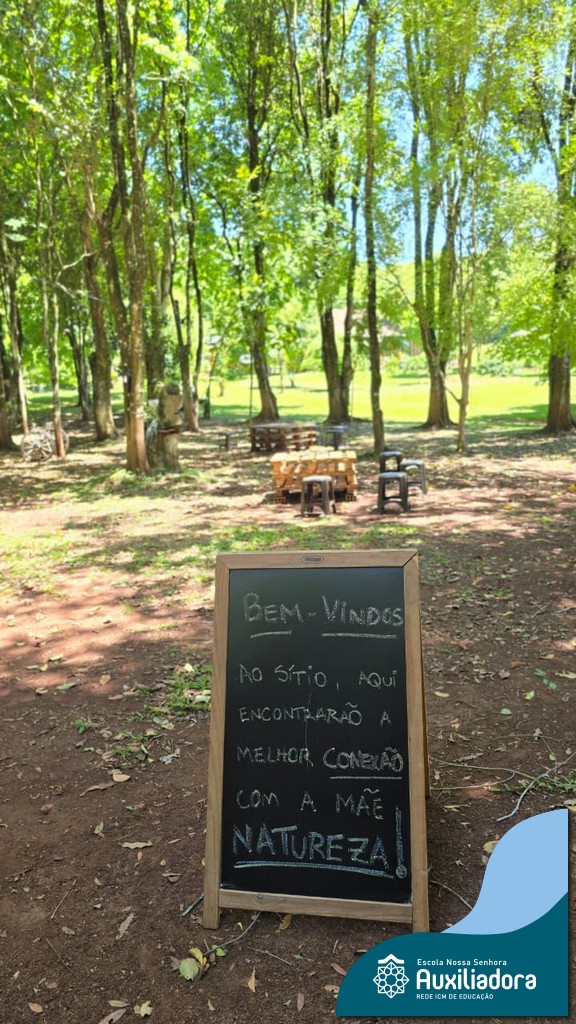 BEM-VINDOS
AO SÍTIO, AQUI
ENCONTRARÃO A
MELHOR CONEXÃO
COM A MÃE
NATUREZA!
Escola Nossa Senhora
Auxiliadora
REDE ICM DE EDUCAÇÃO